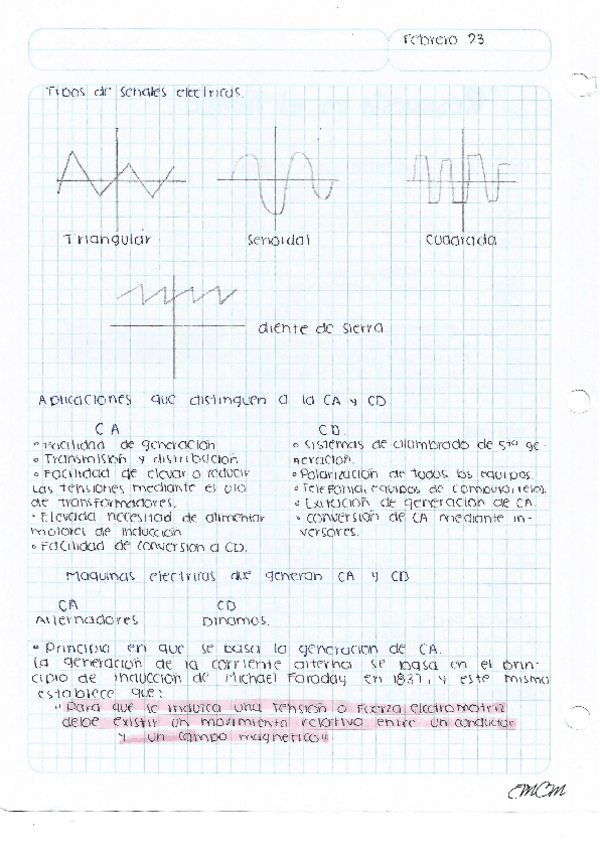 Febrero 23
Tipos de señales electricas.
Triangular
Senoidal
Cuadrada
diente de sierra
Aplicaciones que distinguen a la CA y CD
CA
CD.
• Facilidad de generación
• Transmisión y distribución
• Facilidad de elevar o reducir
las tensiones mediante el uso
de transformadores.
• Elevada necesidad de alimentar
motores de inducción
• Facilidad de conversion a CD.
• Sistemas de alumbrado de 5ta ge-
neración.
• Polarización de todos los equipos.
• Telefonia, equipos de computo,
• Exitación de generacion de CA.
• conversión de CA mediante in-
versores.
Maquinas electricas que generan CA y CD
CA
CD
Alternadores
Dinamos.
• Principio en que se basa la generacion de CA.
La generación de la corriente alterna se basa en el prin-
cipio de inducción de Michael Faraday en 1831, y este mismo
establece que:
"Para que se induzca una tensión o fuerza electromotriz
debe existir un movimiento relativo entre un conductor
y un campo magnetico"